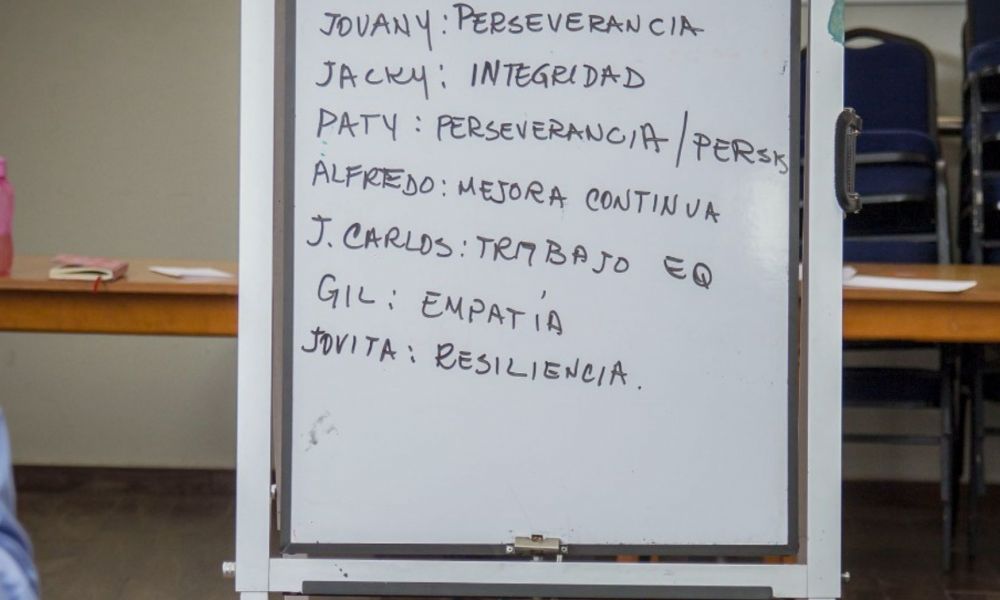 JOVANY: PERSEVERANCIA
JACKY: INTEGRIDAD
PATY: PERSEVERANCIA /
ALFREDO: MEJORA CONTINUA
J. CARLOS: TRABAJO EQ
GIL: EMPATÍA
JOVITA: RESILIENCIA.